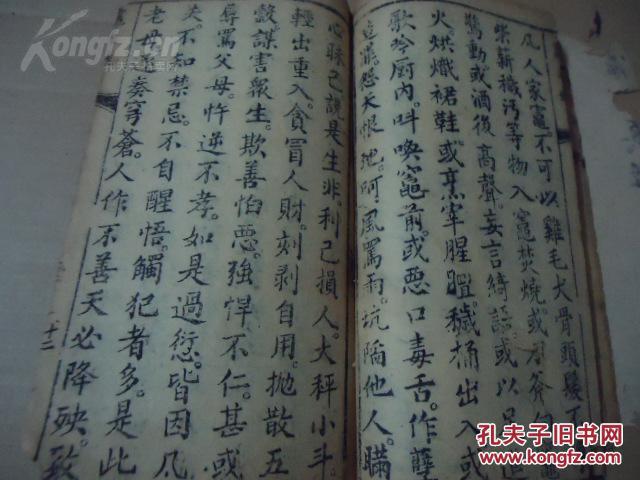 凡人家竈不可以雞毛犬骨頭髮
柴薪穢污等物入竈焚燒或用斧
驚動或酒後高聲妄言綺語或以
火。烘熾裙鞋。或烹宰腥膻。穢桶出入。或
歌吟厨內。叫喚竈前。或惡口毒舌。作孽
造罪。怨天恨地。呵風罵雨。坑陷他人。瞞
心昧己。說是生非。利己損人。大秤小斗。
輕出重入。貪冒人財。刻剥自用。抛散五
穀。謀害眾生。欺善怕惡。強悍不仁。甚或
辱罵父母。忤逆不孝。如是過愆。皆因凡
夫。不知禁忌。不自醒悟。觸犯者多。是此
老母竈奏穹蒼。人作不善。天必降殃。致
十二
Kongfz.com
孔夫子旧书网
孔夫子旧书网
www.kongfz.com